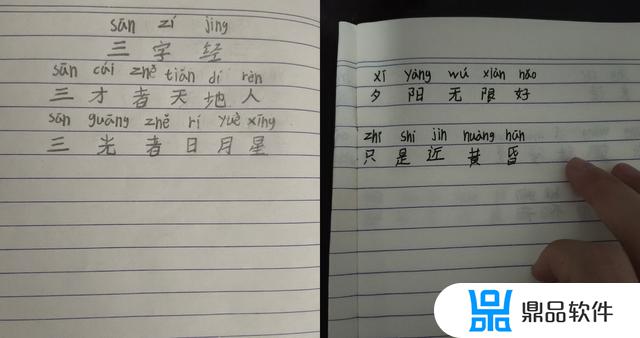 sān zí jīng
三字经
sān cái zhě tiān dí rén
三才者天地人
sān guāng zhě rí yuè xīng
三光者日月星
xī yáng wú xiàn hǎo
夕阳无限好
zhǐ shì jìn huáng hūn
只是近黄昏
鼎品软件